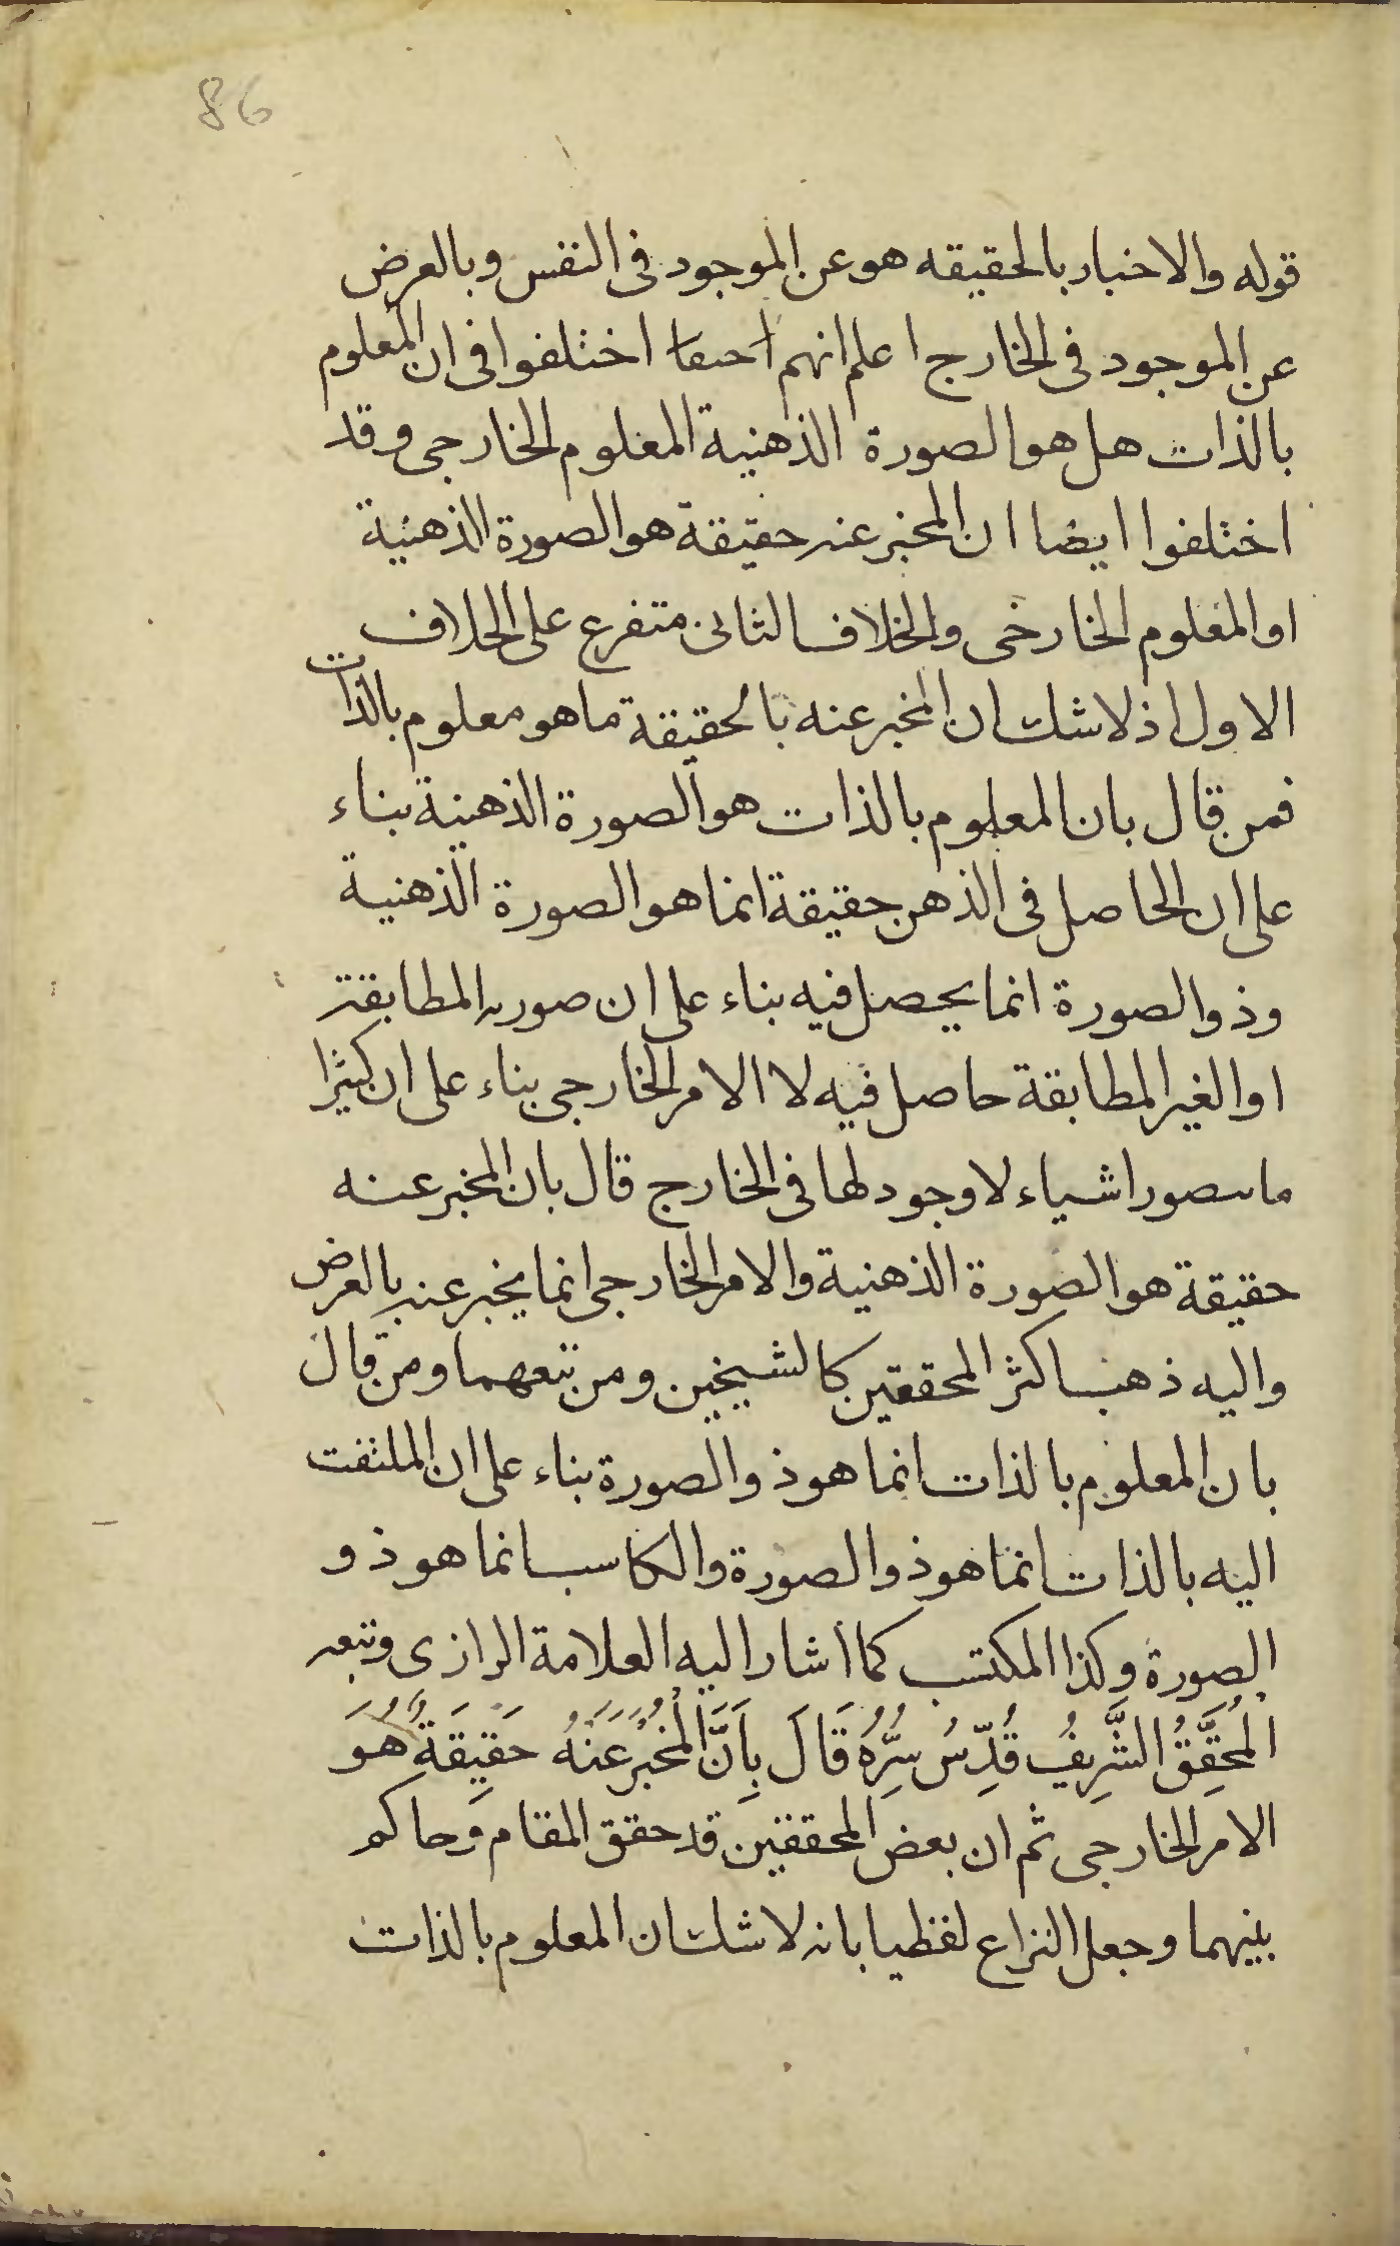 86
قوله والاخبار بالحقيقه هو عن الموجود فى النفس وبالعرض
عن الموجود فى الخارج اعلم انهم اختلفوا فى ان المعلوم
بالذات هل هو الصورة الذهنية المعلوم الخارجى وقد
اختلفوا ايضا ان المخبر عنه حقيقة هو الصورة الذهنية
او المعلوم الخارجى والخلاف الثانى متفرع على الخلاف
الاول اذ لا شك ان المخبر عنه بالحقيقة ما هو معلوم بالذات
فمن قال بان المعلوم بالذات هو الصورة الذهنية بناء
على ان الحاصل فى الذهن حقيقة انما هو الصورة الذهنية
وذو الصورة انما يحصل فيه بناء على ان صورته المطابقة
او الغير المطابقة حاصل فيه لا الامر الخارجى بناء على ان كثيرا
ما يتصور اشياء لا وجود لها فى الخارج قال بان المخبر عنه
حقيقة هو الصورة الذهنية والامر الخارجى انما يخبر عنه بالعرض
واليه ذهب اكثر المحققين كالشيخين ومن تبعهما ومن قال
بان المعلوم بالذات انما هو ذو الصورة بناء على ان الملتفت
اليه بالذات انما هو ذو الصورة والكاسب انما هو ذو
الصورة وكذا المكتسب كما اشار اليه العلامة الرازى وتبعه
الْمُحَقِّقُ الشَّرِيفُ قُدِّسُ سِرُّهُ قَالَ بِاَنَّ الْمُخْبَرَ عَنْهُ حَقِيقَةً هُوَ
الامر الخارجى ثم ان بعض المحققين قد حقق المقام وحاكم
بينهما وجعل النزاع لفظيا بانه لا شك ان المعلوم بالذات